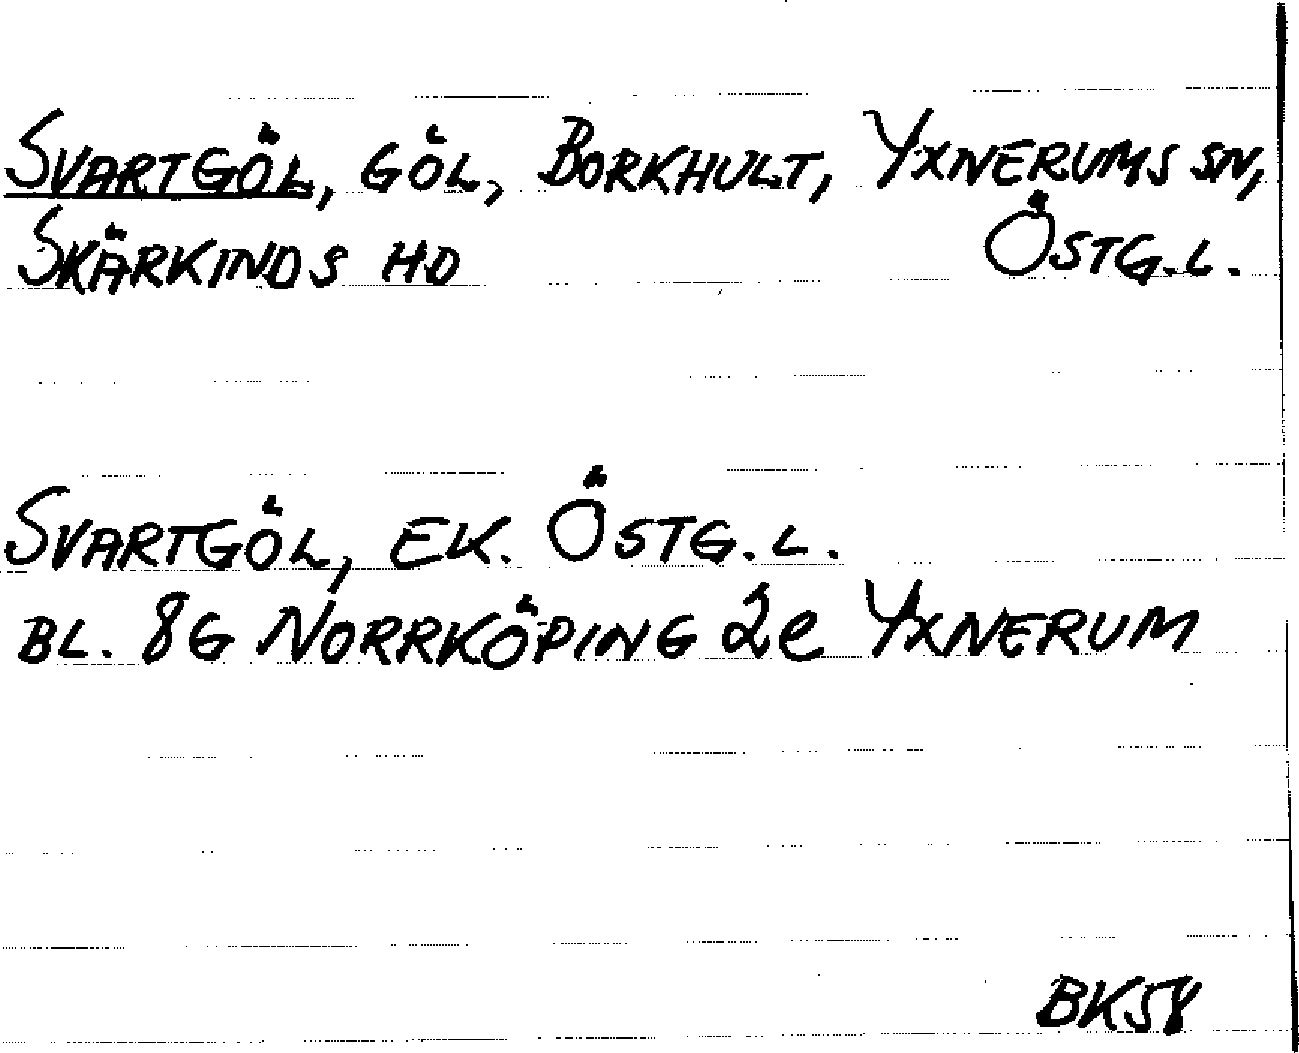 SVARTGÖL, GÖL, BORKHULT, YXNERUMS SN,
SKÄRKINDS HD ÖSTG.L.
SVARTGÖL, EK. ÖSTG.L.
BL. 8G NORRKÖPING 2e YXNERUM
BK58